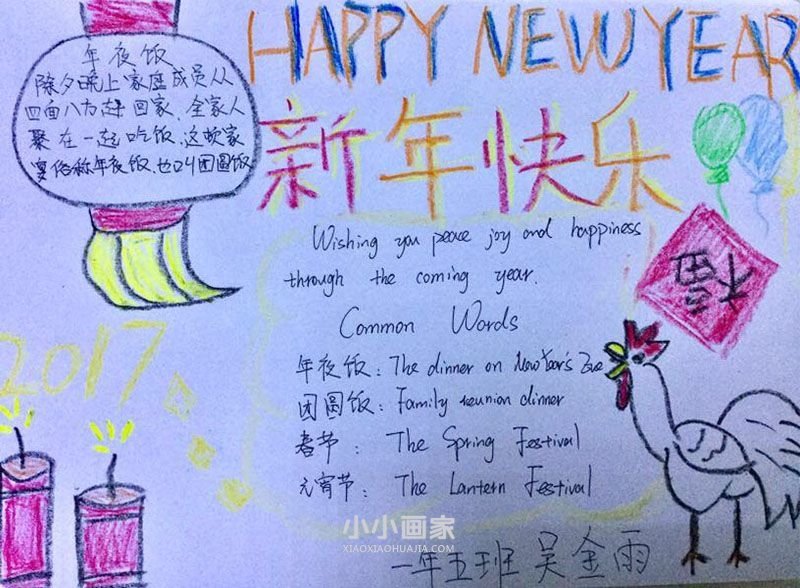 HAPPY NEW YEAR
年夜饭
除夕晚上家庭成员从
四面八方赶回家、全家人
聚在一起吃饭、这顿家
宴俗称年夜饭、也叫团圆饭
新年快乐
Wishing you peace joy and happiness
through the coming year.
福
Common Words
年夜饭：The dinner on New Year's Eve
团圆饭：Family reunion dinner
春节：The Spring Festival
元宵节：The Lantern Festival
2017
小小画家
XIAOXIAOHUAJIA.COM
一年五班 吴金雨